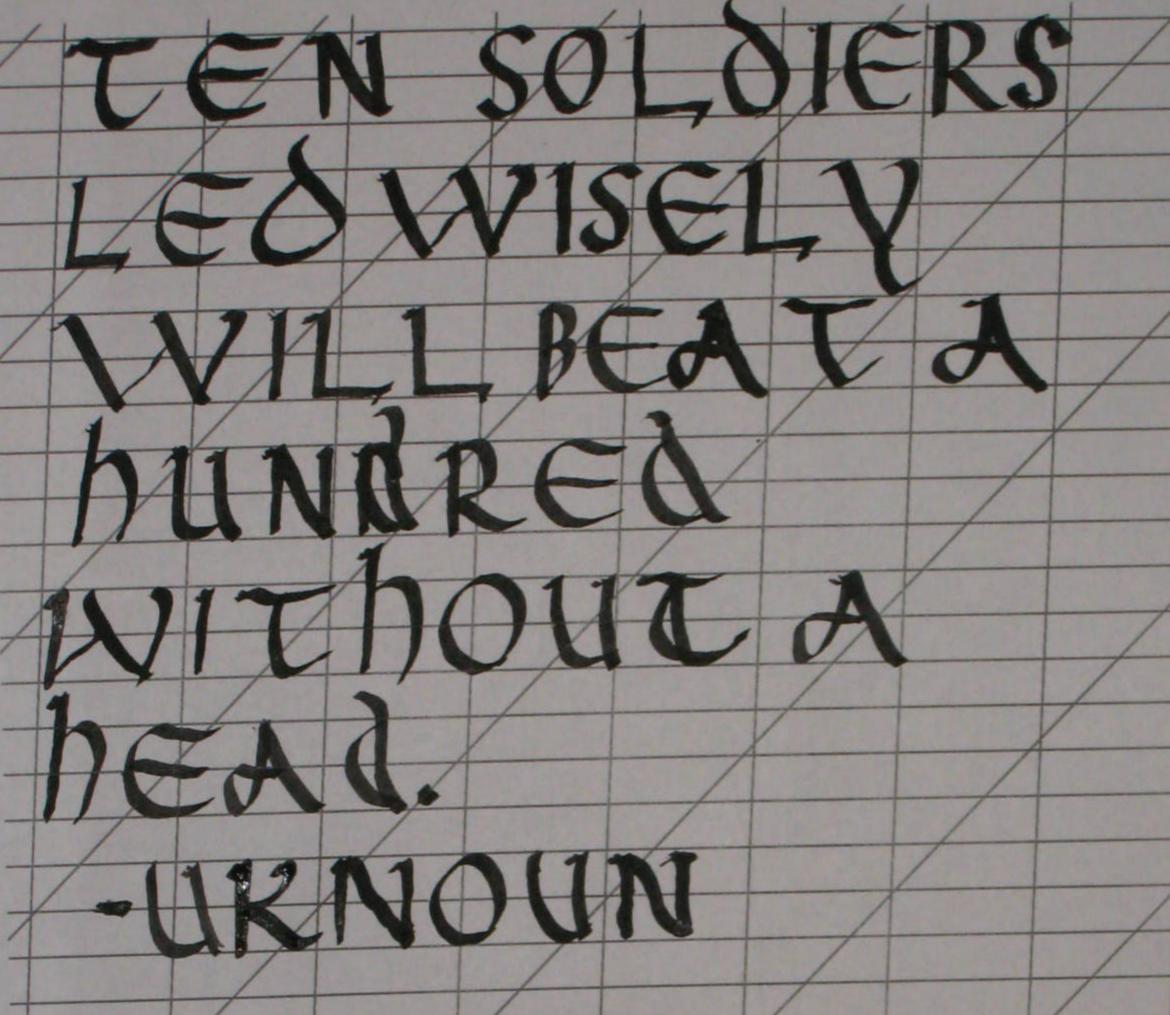 TEN SOLdIERS
LEd WISELY
WILL BEAT A
hUNdREd
WIThOUT A
hEAd.
-UKNOUN